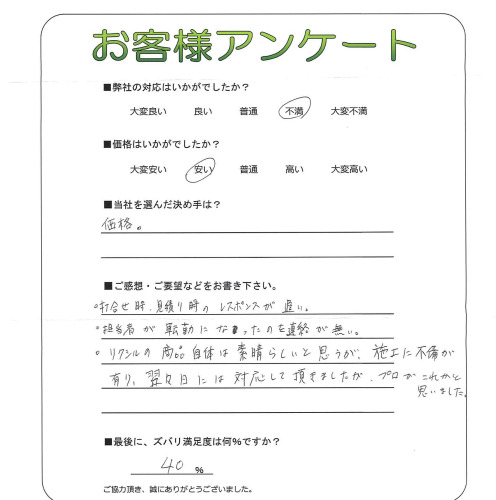 お客様アンケート
■弊社の対応はいかがでしたか？
大変良い 良い 普通 不満 大変不満
■価格はいかがでしたか？
大変安い 安い 普通 高い 大変高い
■当社を選んだ決め手は？
価格。
■ご感想・ご要望などをお書き下さい。
・打合せ時、見積り時のレスポンスが遅い。
・担当者が転勤になったのを連絡が無い。
・リクシルの商品自体は素晴らしいと思うが、施工に不備が
有り、翌々日には対応して頂きましたが、プロがこれかと
思いました。
■最後に、ズバリ満足度は何%ですか？
40 %
ご協力頂き、誠にありがとうございました。